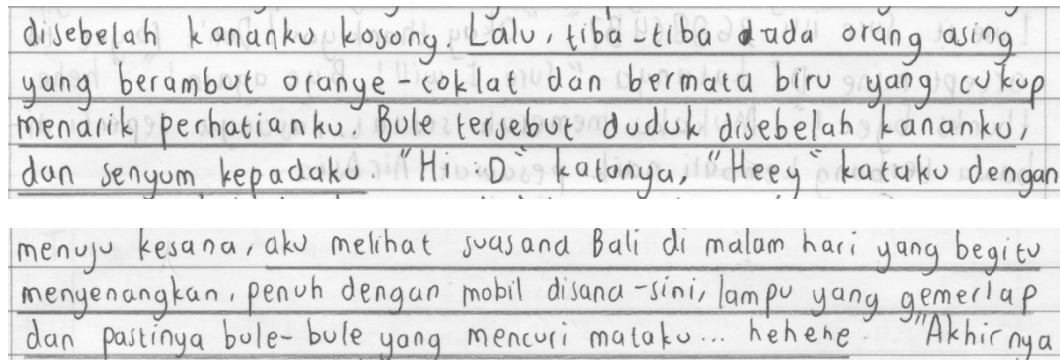 disebelah kananku kosong. Lalu, tiba-tiba ada orang asing
yang berambut oranye-coklat dan bermata biru yang cukup
menarik perhatianku. Bule tersebut duduk disebelah kananku,
dan senyum kepadaku. "Hi :D" katanya, "Heey" kataku dengan
menuju kesana, aku melihat suasana Bali di malam hari yang begitu
menyenangkan, penuh dengan mobil disana-sini, lampu yang gemerlap
dan pastinya bule-bule yang mencuri mataku... hehehe "Akhirnya